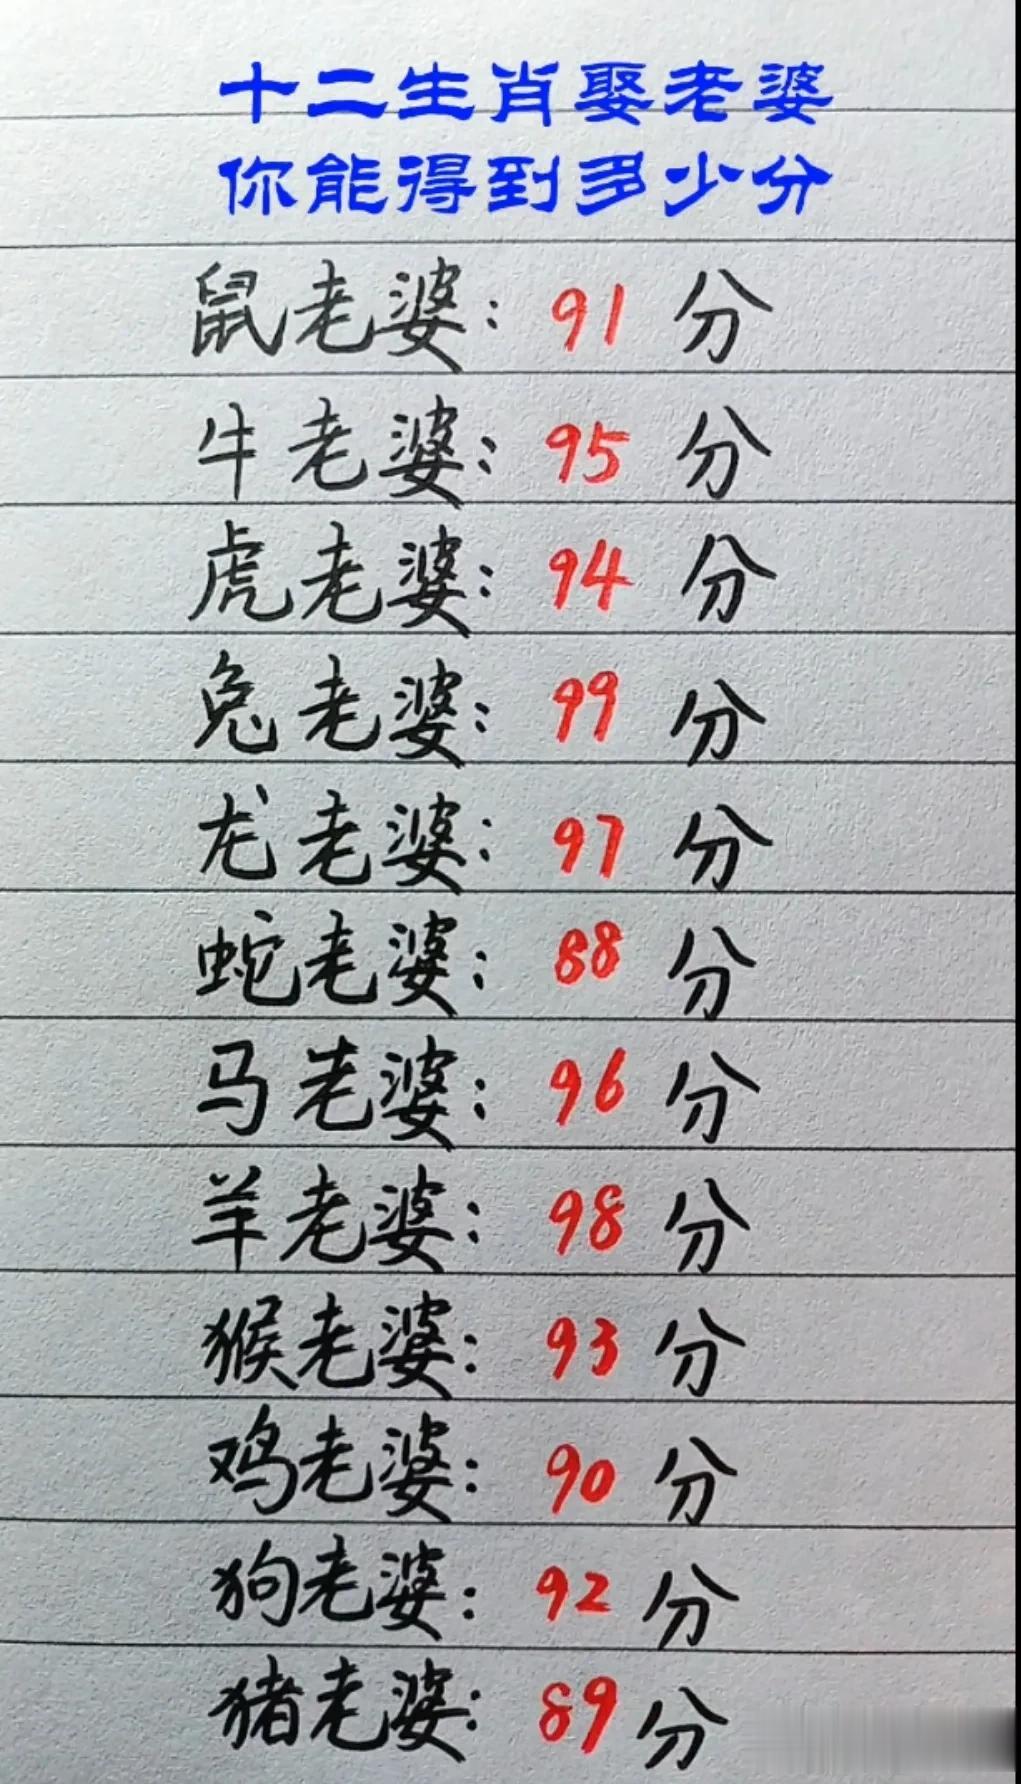 十二生肖娶老婆
你能得到多少分
鼠老婆：91分
牛老婆：95分
虎老婆：94分
兔老婆：99分
龙老婆：97分
蛇老婆：88分
马老婆：96分
羊老婆：98分
猴老婆：93分
鸡老婆：90分
狗老婆：92分
猪老婆：89分